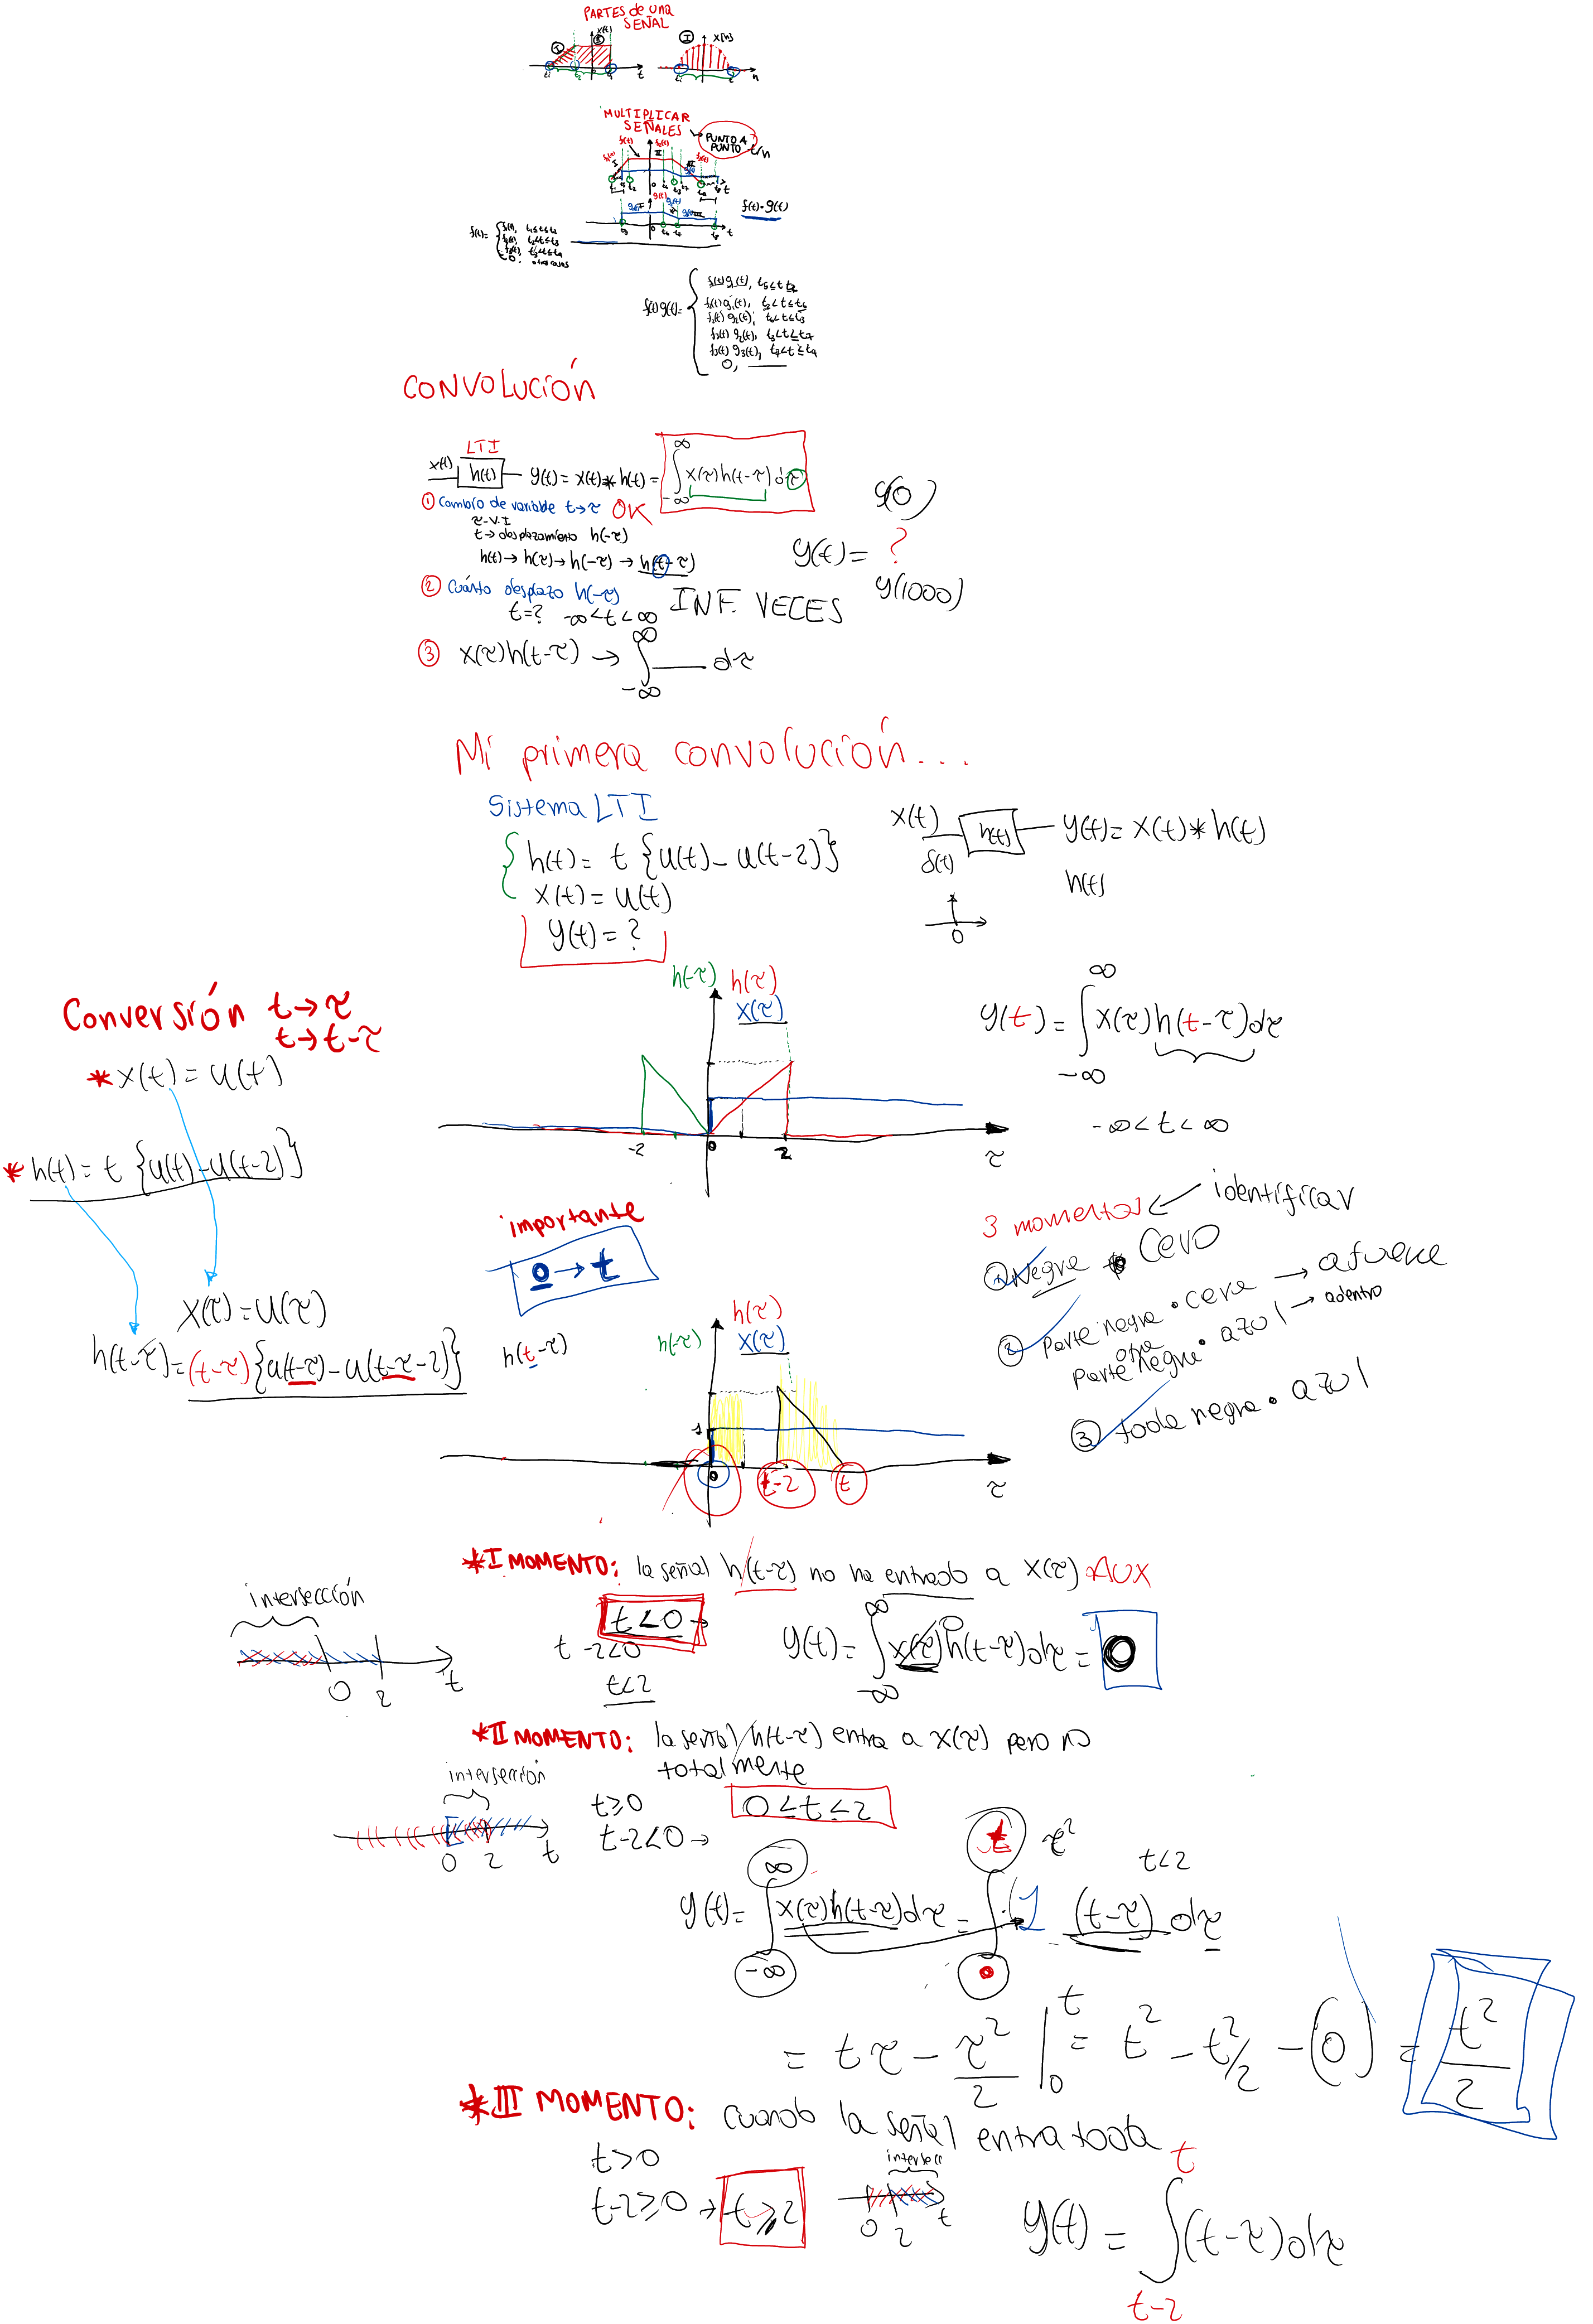 PARTES de una
SEÑAL
x(t)
I
II
t₁
t₂
0
t
I
x[n]
n
MULTIPLICAR
SEÑALES
PUNTO A
PUNTO t/n
f₁(t)
f₂(t)
I
II
III
0
t
g₁(t)
g₂(t)
g₃(t)
f(t)·g(t)
0
t
f(t)=
f₁(t), t₁≤t≤t₂
f₂(t), t₂<t≤t₃
f₃(t), t₃<t≤t₄
0, otros casos
f(t)g(t)=
f₁(t)g₁(t), t₅≤t≤t₂
f₂(t)g₁(t), t₂<t≤t₆
f₂(t)g₂(t), t₆<t≤t₃
f₃(t)g₂(t), t₃<t≤t₇
f₃(t)g₃(t), t₇<t≤t₄
0,
CONVOLUCIÓN
LTI
x(t) h(t) y(t)=x(t)*h(t)= ∫ x(τ)h(t-τ)dτ
∞
-∞
① Cambio de variable t→τ OK
τ-V.I
t→desplazamiento h(-τ)
h(t)→h(τ)→h(-τ)→h(t-τ)
y(0)
y(t)= ?
y(1000)
② Cuánto desplazo h(-τ)
t=? -∞<t<∞ INF. VECES
③ x(τ)h(t-τ) → ∫ dτ
∞
-∞
Mi primera convolución...
Sistema LTI
h(t)= t {u(t)-u(t-2)}
x(t)=u(t)
y(t)=?
x(t) h(t) y(t)=x(t)*h(t)
δ(t)
h(t)
0
Conversión t→τ
t→t-τ
*x(t)=u(t)
*h(t)= t {u(t)-u(t-2)}
x(τ)=u(τ)
h(t-τ)=(t-τ){u(t-τ)-u(t-τ-2)}
h(-τ) h(τ)
x(τ)
-2
0
2
τ
∞
y(t)= ∫ x(τ)h(t-τ)dτ
-∞
-∞<t<∞
importante
0→t
3 momentos identificar
① Negra • Cero
② parte negra • cero → afuera
otra
parte negra • azul → adentro
③ toda negra • azul
h(t-τ)
h(-τ)
h(τ)
x(τ)
1
0
t-2
t
τ
*I MOMENTO: la señal h(t-τ) no ha entrado a x(τ) AUX
intersección
0
2
t
t<0
t-2<0
t<2
∞
y(t)= ∫ x(τ)h(t-τ)dτ = 0
-∞
0
*II MOMENTO: la señal h(t-τ) entra a x(τ) pero no
totalmente
intersección
0
2
t
t≥0
t-2<0→
0≤t<2
t<2
τ²
∞
t
y(t)= ∫ x(τ)h(t-τ)dτ = ∫ 1 (t-τ) dτ
-∞
0
= tτ - τ²/2 |₀ᵗ = t² - t²/2 - (0) = t²/2
*III MOMENTO: cuando la señal entra toda
t>0
t-2≥0 → t≥2
intersecc
0
2
t
t
y(t)= ∫ (t-τ)dτ
t-2